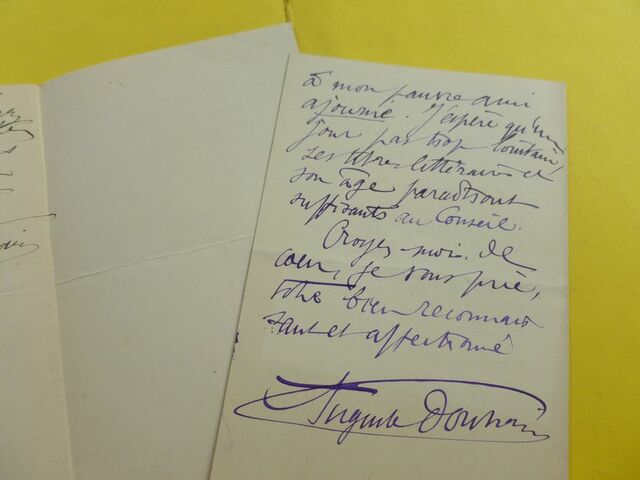 à mon pauvre ami
ajourné. J'espère qu'un
jour pas trop lointain,
ses titres littéraires et
son âge paraîtront
suffisants au Conseil.
Croyez-moi, de
cœur, je vous prie,
votre bien reconnais
sant et affectionné
Auguste Dorchain